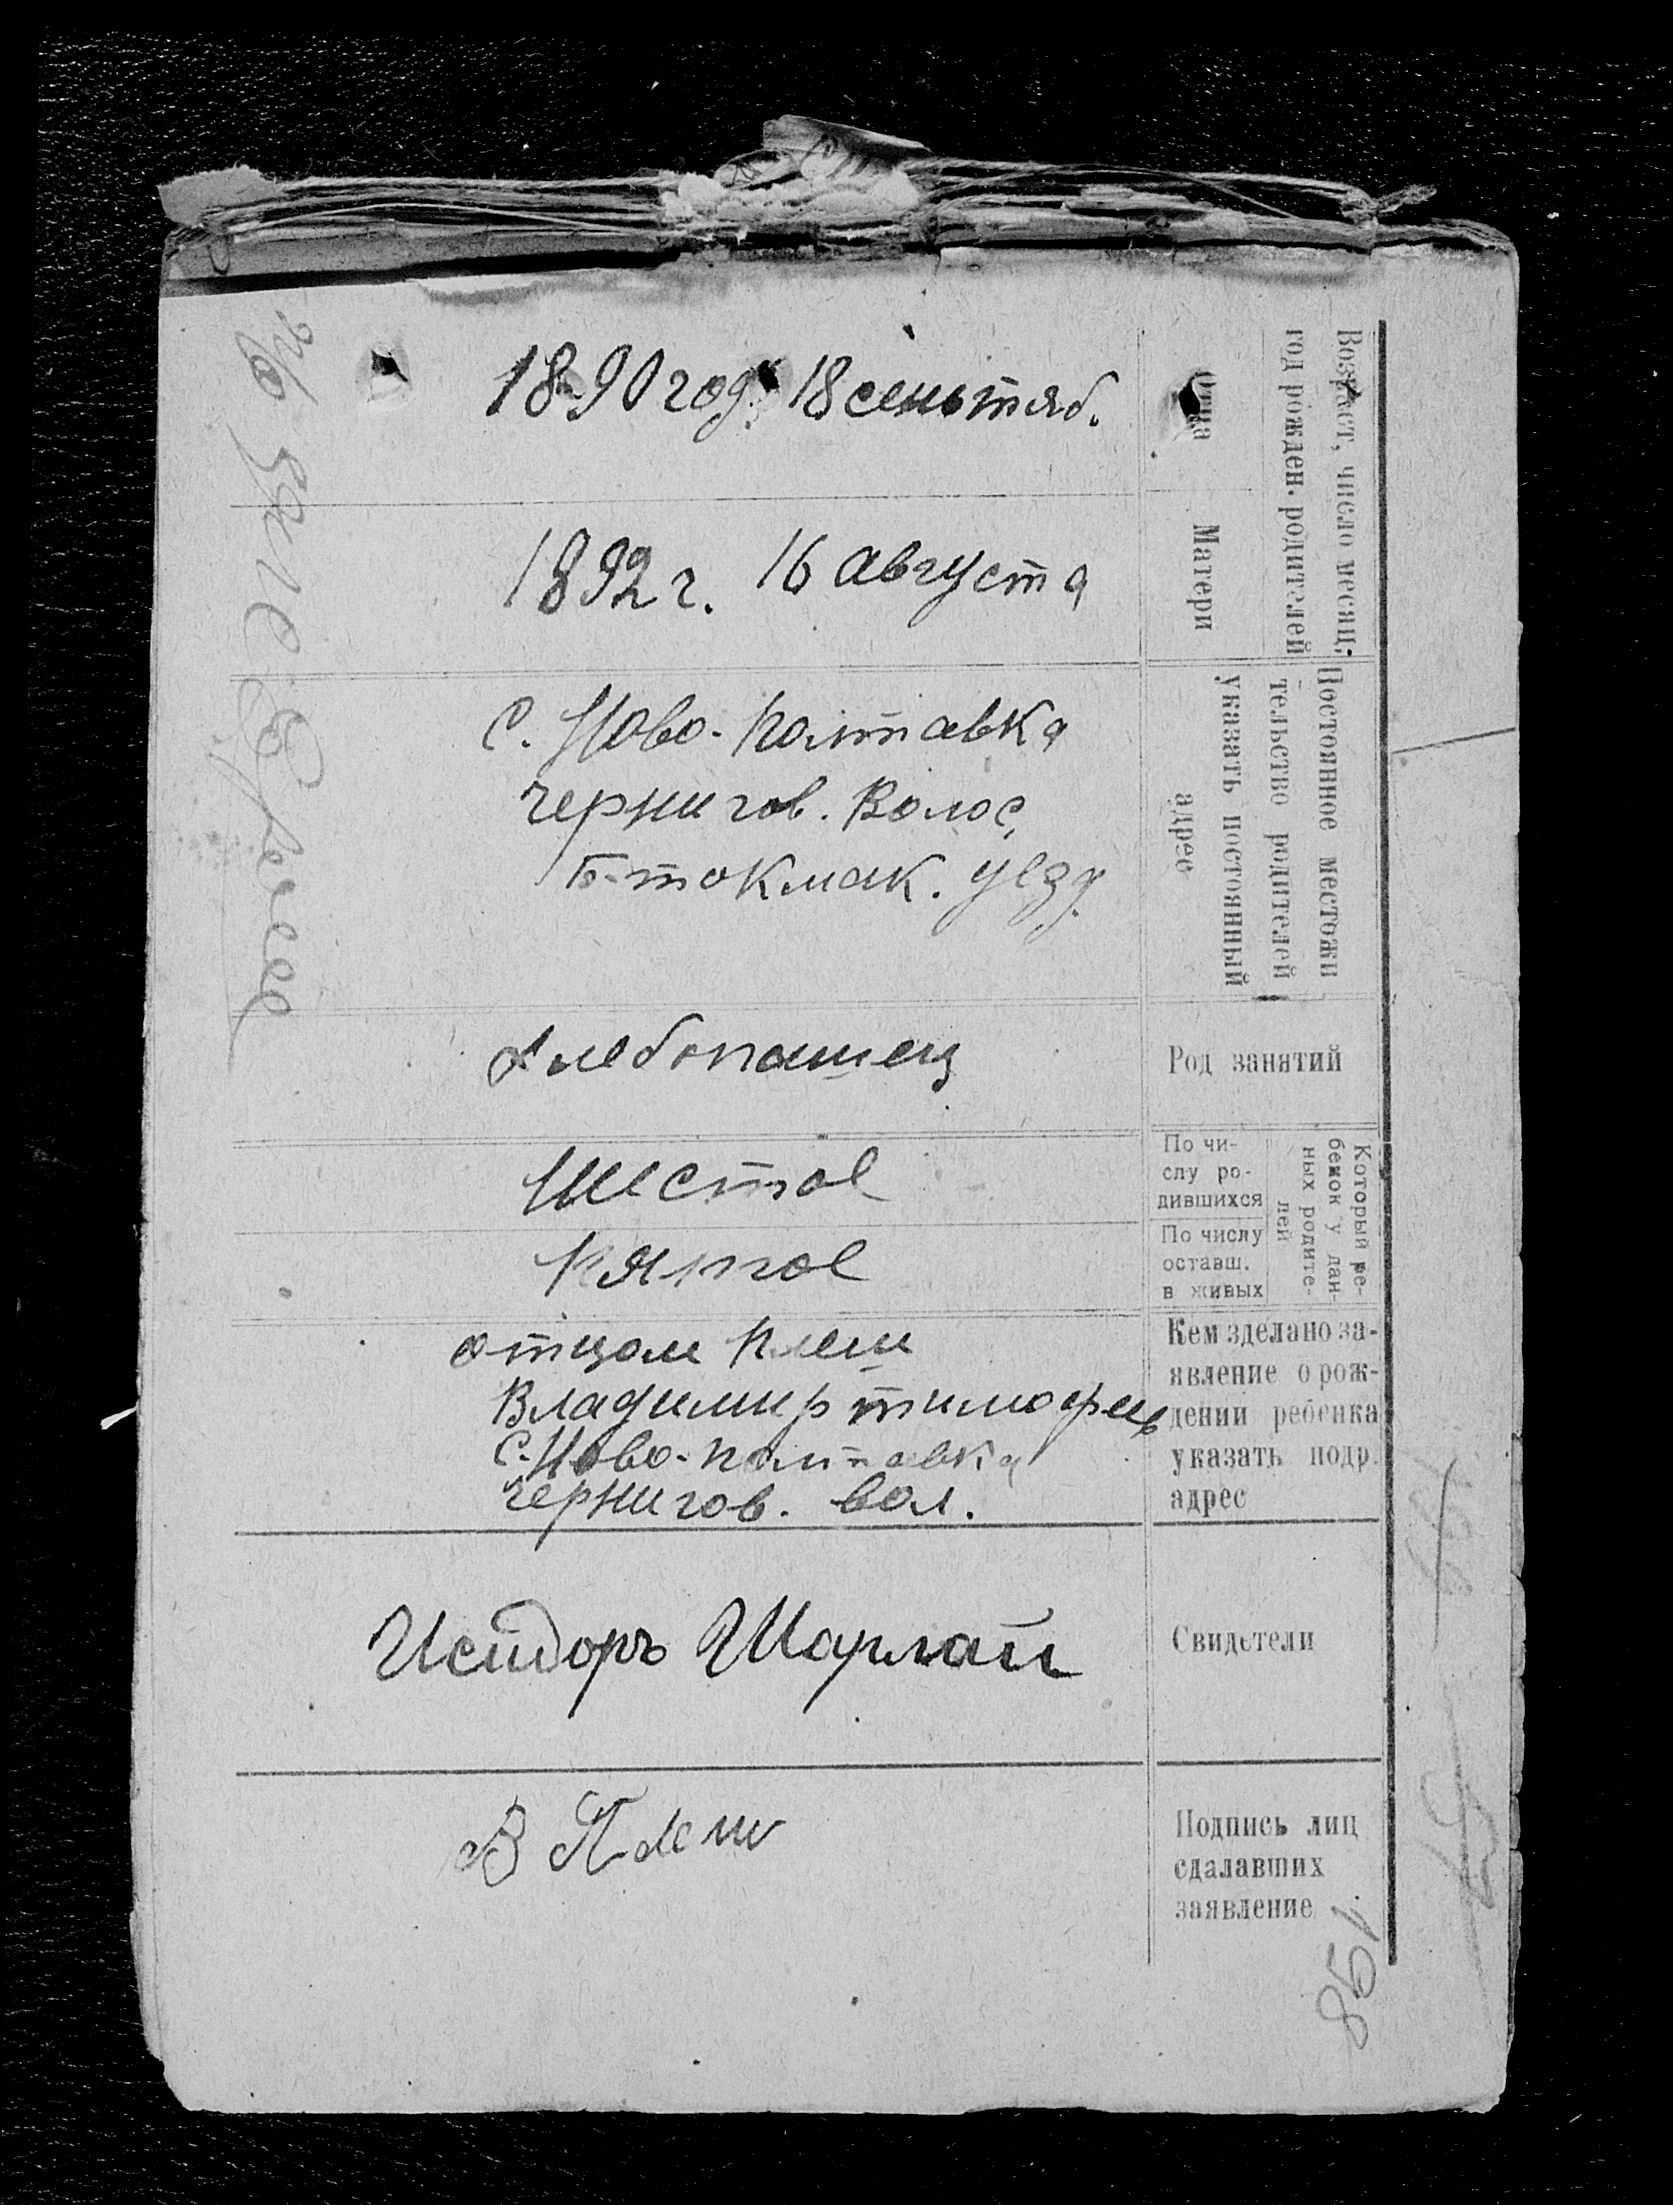 Возраст, число месяц,
год рожден. родителей
Отца
18-90 год. 18 сеньтяб.
Матери
1892 г. 16 августа
Постоянное местожи
тельство родителей
указать постоянный
адрес
С. Ново-Полтавка
Чернигов. Волос.
Б-токмак. уезд.
Род занятий
Хлебопашец
Который ре-
бенок у дан-
ных родите-
лей
По чи-
слу ро-
дившихся
Шестое
По числу
оставш.
в живых
Пятое
Кем зделано за-
явление о рож-
дении ребенка
указать подр.
адрес
отцом Плеш
Владимир тимофеев
С. Ново-полтавка
Чернигов. вол.
Свидетели
Исидоръ Шарлай
Подпись лиц
сдалавших
заявление
В Плеш
198